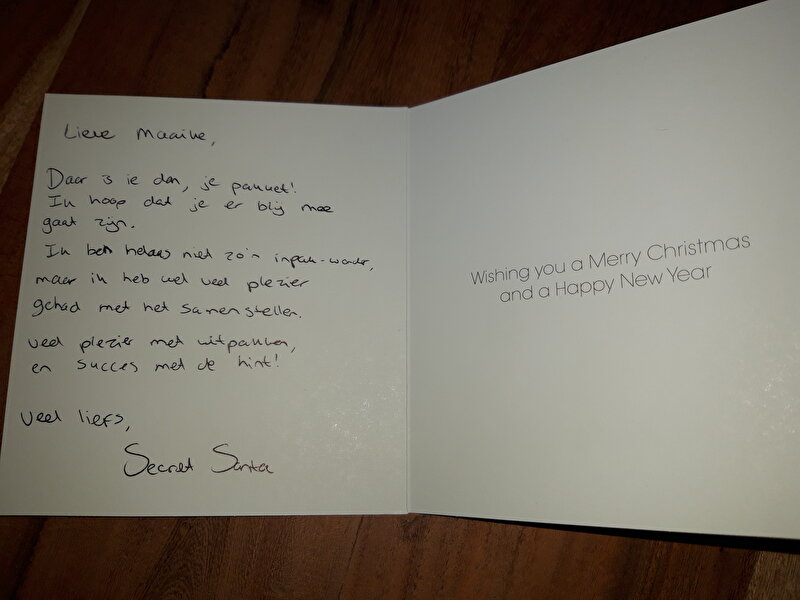 Lieve Maaike,
Daar is ie dan, je pakket!
Ik hoop dat je er blij mee
gaat zijn.
Ik ben helaas niet zo'n inpak-wonder,
maar ik heb wel veel plezier
gehad met het samenstellen.
veel plezier met uitpakken,
en succes met de hint!
veel liefs,
Secret Santa
Wishing you a Merry Christmas
and a Happy New Year